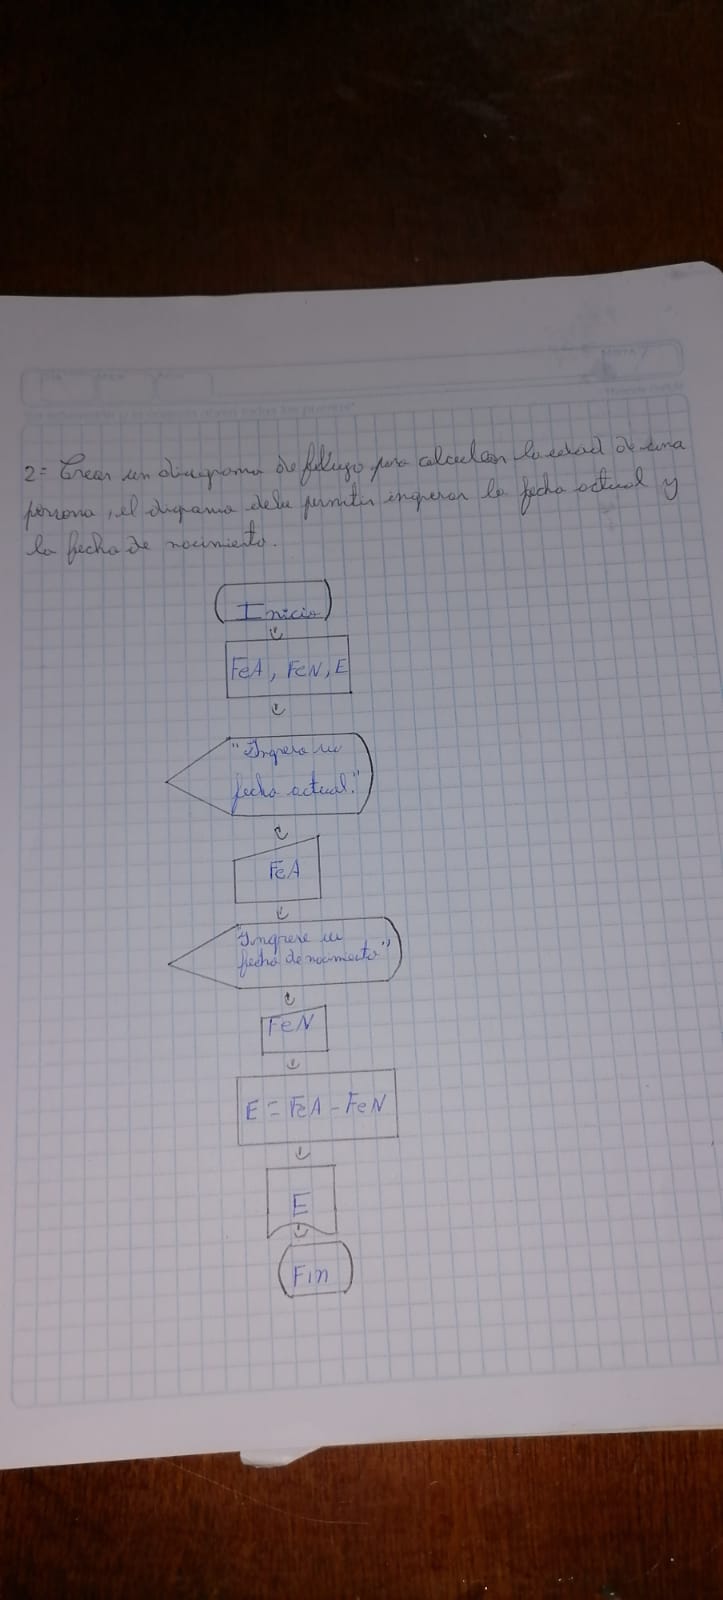 2= Crear un diagrama de flujo para calcular la edad de una
persona, el diagrama debe permitir ingresar la fecha actual y
la fecha de nacimiento.
Inicio
FeA, FeN, E
"Ingrese su
fecha actual."
FeA
"Ingrese su
fecha de nacimiento"
FeN
E = FeA - FeN
E
Fin